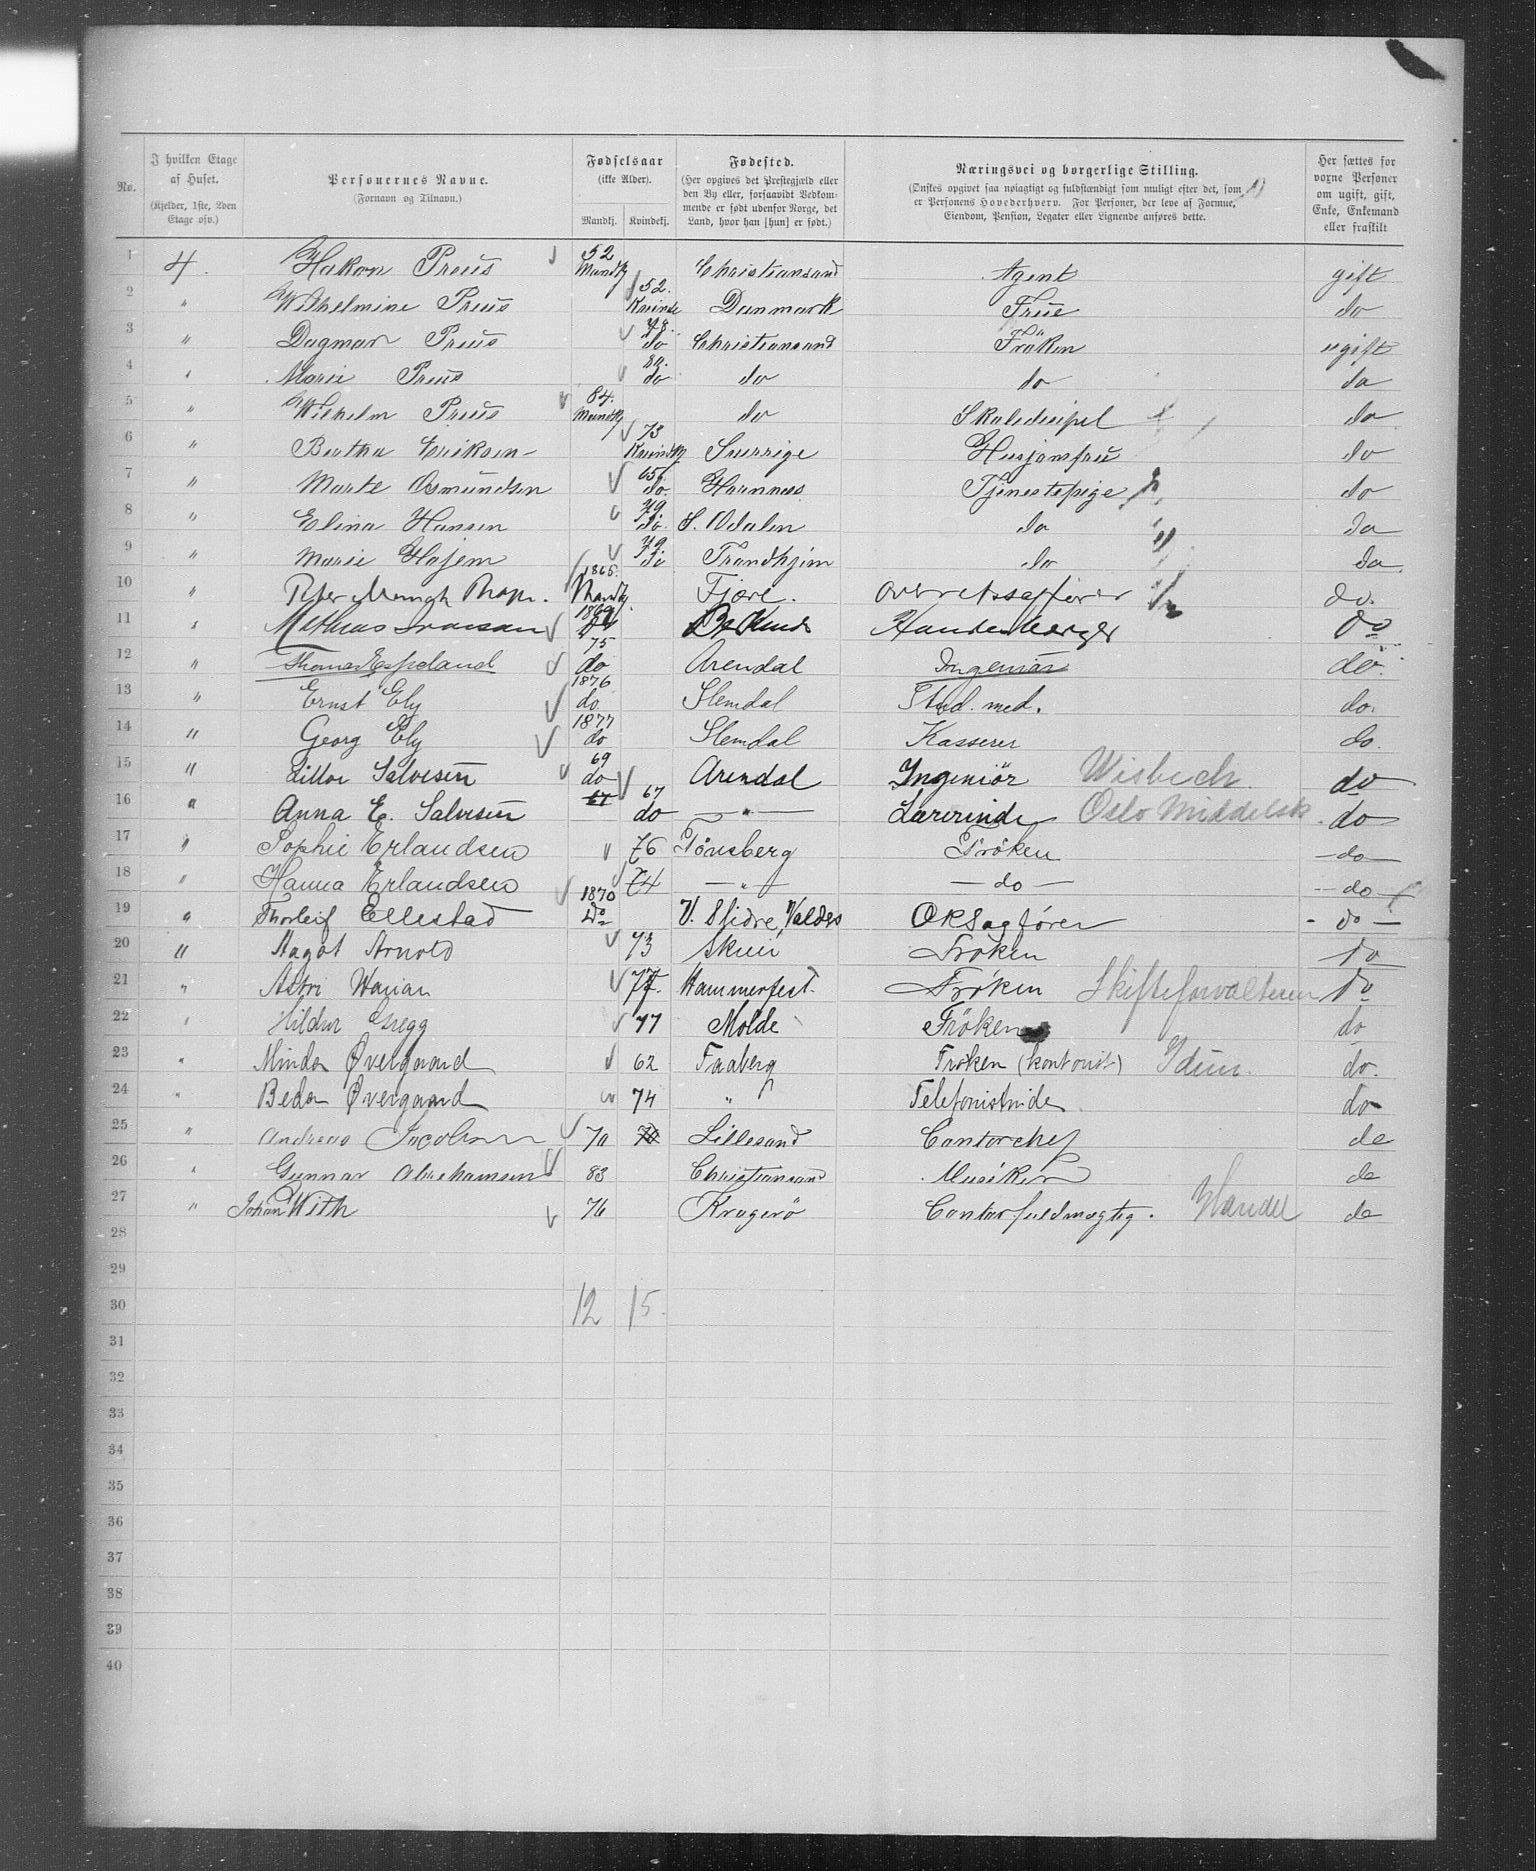 No.
I hvilken Etage af Huset.
(Kjelder, 1ste, 2den Etage osv.)
Personernes Navne.
(Fornavn og Tilnavn.)
Fødselsaar
(ikke Alder).
Mandkj. Kvindekj.
Fødested.
(Her opgives det Prestegjæld eller den By eller, forsaavidt Vedkommende er født udenfor Norge, det Land, hvor han [hun] er født.)
Næringsvei og borgerlige Stilling.
(Ønskes opgivet saa nøiagtigt og fuldstændigt som muligt efter det, som er Personens Hovederhverv. For Personer, der leve af Formue, Eiendom, Pension, Legater eller Lignende anføres dette.
Her sættes for voxne Personer om ugift, gift, Enke, Enkemand eller fraskilt
1 4. Hakon Preüs 52 Mandkj Christiansand Agent gift
2 " Wilhelmine Preüs 52. Kvinde Danmark Früe do
3 " Dagmar Preüs 78. do Christiansand Fröken ugift
4 " Marie Preüs do do do do
5 " Wilhelm Preüs 84. Mandkj do Skoledisipel do
6 " Bertha Eriksen 73 Kvindkj Sverrige Husjomfrü do
7 " Marte Osmundsen 65 do. Tjenestepige do
8 " Elina Hansen 79 do. S. Odalen do do
9 " Marie Hojem 79 do Trondhjem do do
10 " Peter Mungh 1865. Mandkj. Fjære. Overretssagfører do.
11 " Mathias 1869 do
12 " Thomas Espeland 75 do Arendal Ingeniør do.
13 " Ernst Ely 1876 do. Slemdal Stud. med. do.
14 " Georg Ely 1877 do Slemdal Kasserer do.
15 " Salvesen 69 do Arendal Ingeniör Wisbech do
16 " Anna E. Salvesen 67 67 do " Lærerinde Oslo Middelsk. do
17 " Sophie Erlandsen 76 Tönsberg Fröken do
18 " Hanna Erlandsen 74 " do do
19 " Thorleif Ellestad 1870 Do V. Slidre, Valdrs ORSagfører do
20 " Aagot Arnold 73 Frøken do
21 " Astri 77. Hammerfest. Frøken Skifteforvalteren do
22 " Hildur Gregg 77 Molde Frøken do
23 " Minda Øvergaard 62 Faaberg Frøken (kontorist) Idun. do.
24 " Beda Øvergaard 74 " Telefonistinde do
25 " Andreas Jacobsen 70 70 Lillesand Contorchef do
26 " Gunnar Abrahamsen 83 Christiansand Musiker do
27 " Johan With 76 Kragerö Contorfuldmægtig. Handel do
28
29
30 12 15.
31
32
33
34
35
36
37
38
39
40